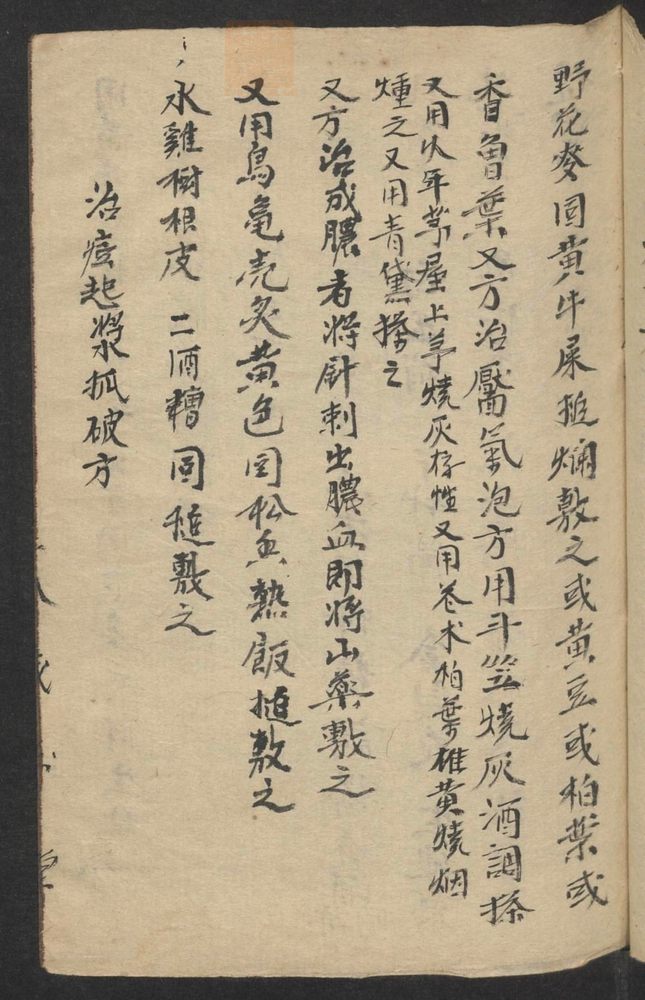 野花麥同黃牛屎搥爛敷之或黃豆或柏葉或
香魯葉又方治靨氣泡方用斗笠燒灰酒調搽
又用火年茅屋上茅燒灰存性又用苍术柏葉雄黃燒烟
燻之又用青黛搽之
又方治成膿者將針刺出膿血即將山藥敷之
又用烏龜壳炙黃色同松魚熱飯搥敷之
水雞樹根皮 二酒糟 同搥敷之
治痘起漿抓破方